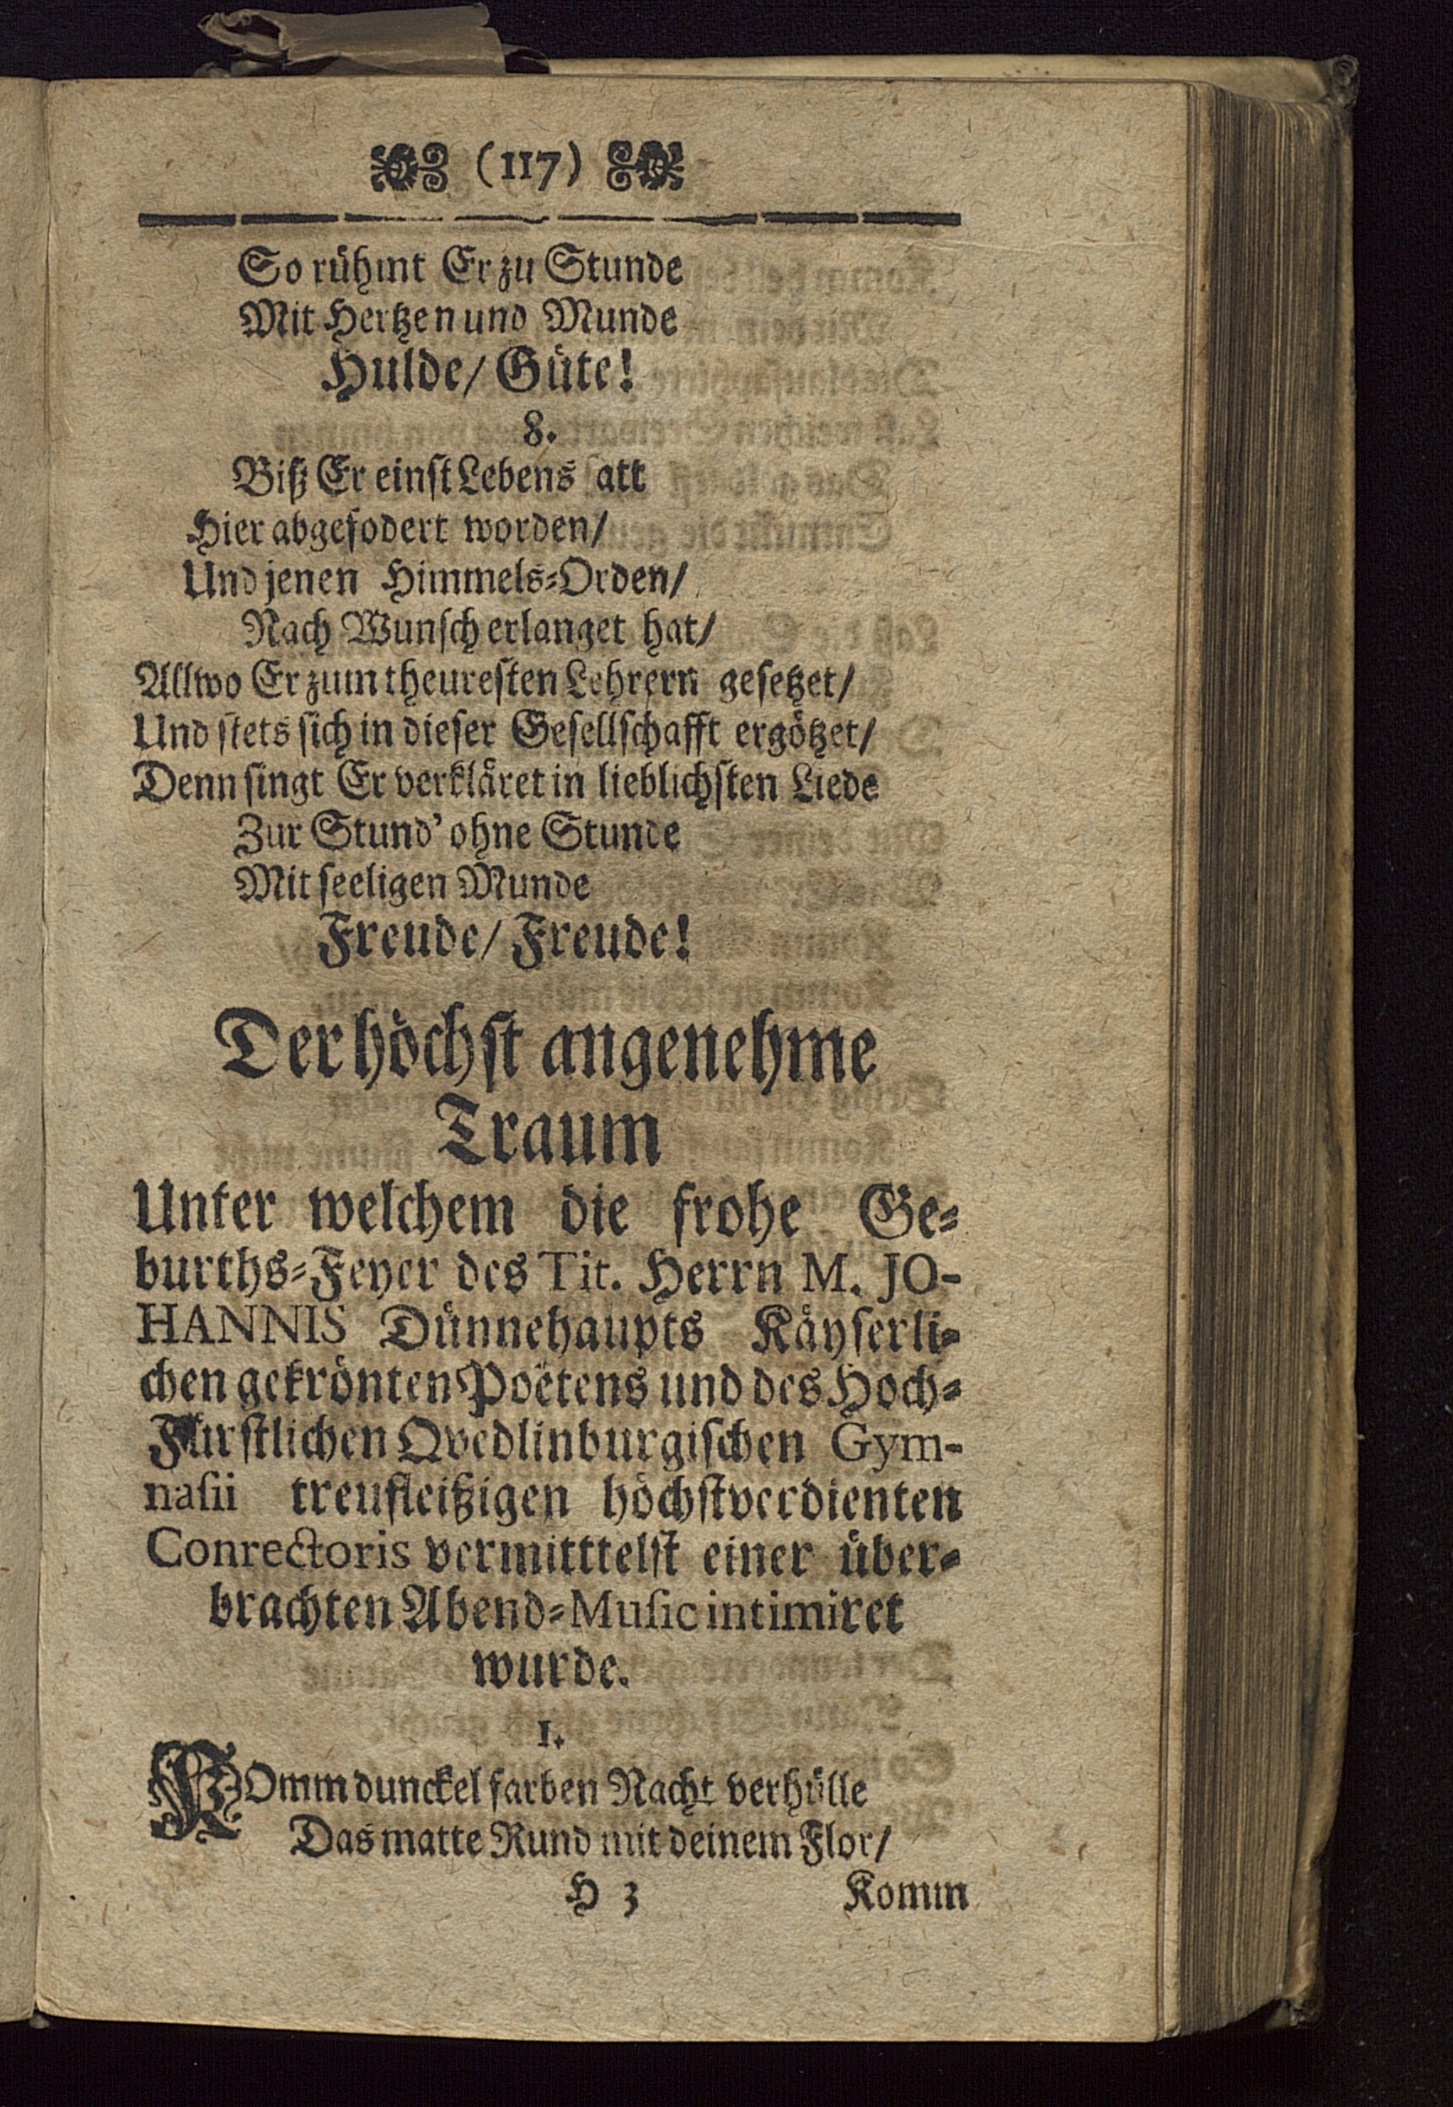 (117)
So rühmt Er zu Stunde
Mit Hertzen und Munde
Hulde/ Güte!
8.
Biß Er einst Lebens satt
Hier abgefodert worden/
Und jenen Himmels-Orden/
Nach Wunsch erlanget hat/
Allwo Er zum theuresten Lehrern gesetzet/
Und stets sich in dieser Gesellschafft ergötzet/
Denn singt Er verkläret in lieblichsten Liede
Zur Stund' ohne Stunde
Mit seeligen Munde
Freude/ Freude!
Der höchst angenehme
Traum
Unter welchem die frohe Ge-
burths-Feyer des Tit. Herrn M. JO-
HANNIS Dünnehaupts Käyserli-
chen gekrönten Poëtens und des Hoch-
Fürstlichen Qvedlinburgischen Gym-
nasii treufleißigen höchstverdienten
Conrectoris vermitttelst einer über-
brachten Abend-Music intimiret
wurde.
1.
KOmm dunckel farben Nacht verhülle
Das matte Rund mit deinem Flor/
H 3 Komm